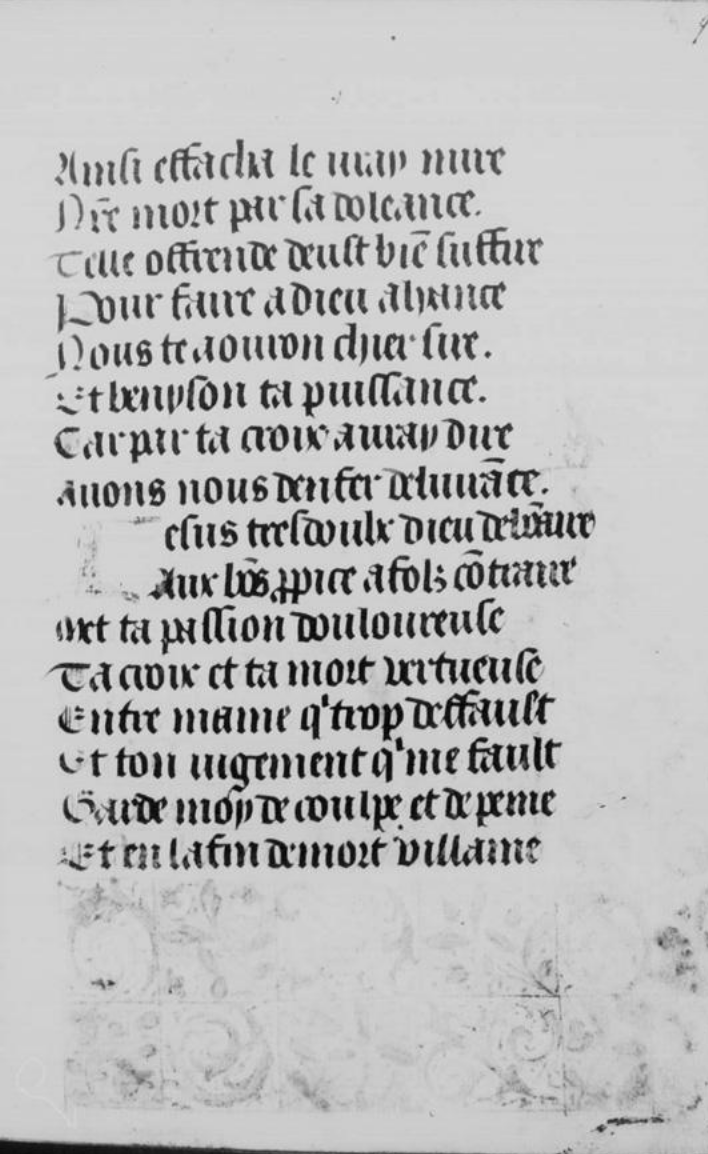 Ainsi effacha le vray mire
Nr̄e mort par sa doleance.
Telle offrende deust biē suffire
Pour faire a dieu aliance
Nous te aouron chier sire.
Et benyson ta puissance.
Car par ta croix a vray dire
auons nous denfer deliurāce.
esus tresdoulx dieu debōnaire
Aux bōs ꝓpice a folz cōtraire
Met ta passion douloureuse
Ta croix et ta mort vertueuse
Entre mame q' trop deffault
Et ton iugement q' me fault
Garde moy de coulpe et de peine
Et en la fin de mort villaine